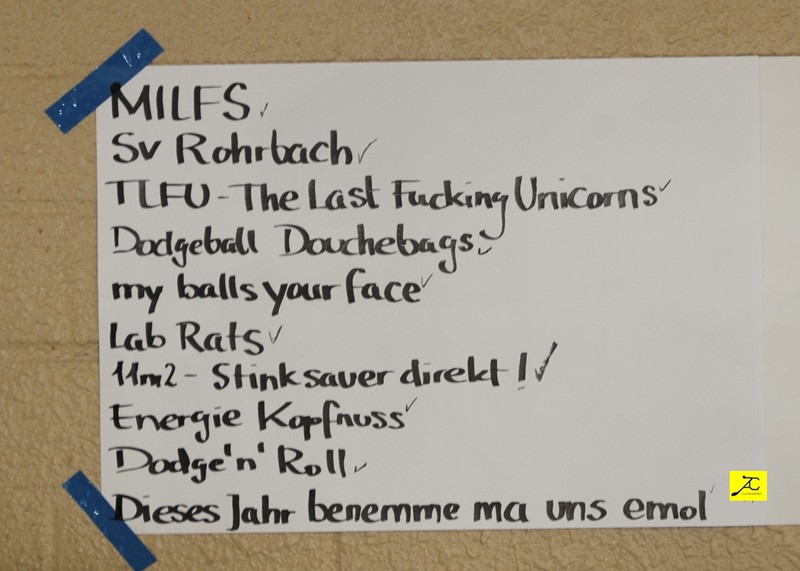 MILFS ✓
SV Rohrbach ✓
TLFU - The Last Fucking Unicorns ✓
Dodgeball Douchebags ✓
my balls your face ✓
Lab Rats ✓
11m2 - Stinksauer direkt! ✓
Energie Kopfnuss ✓
Dodge'n' Roll ✓
Dieses Jahr benemme ma uns emol